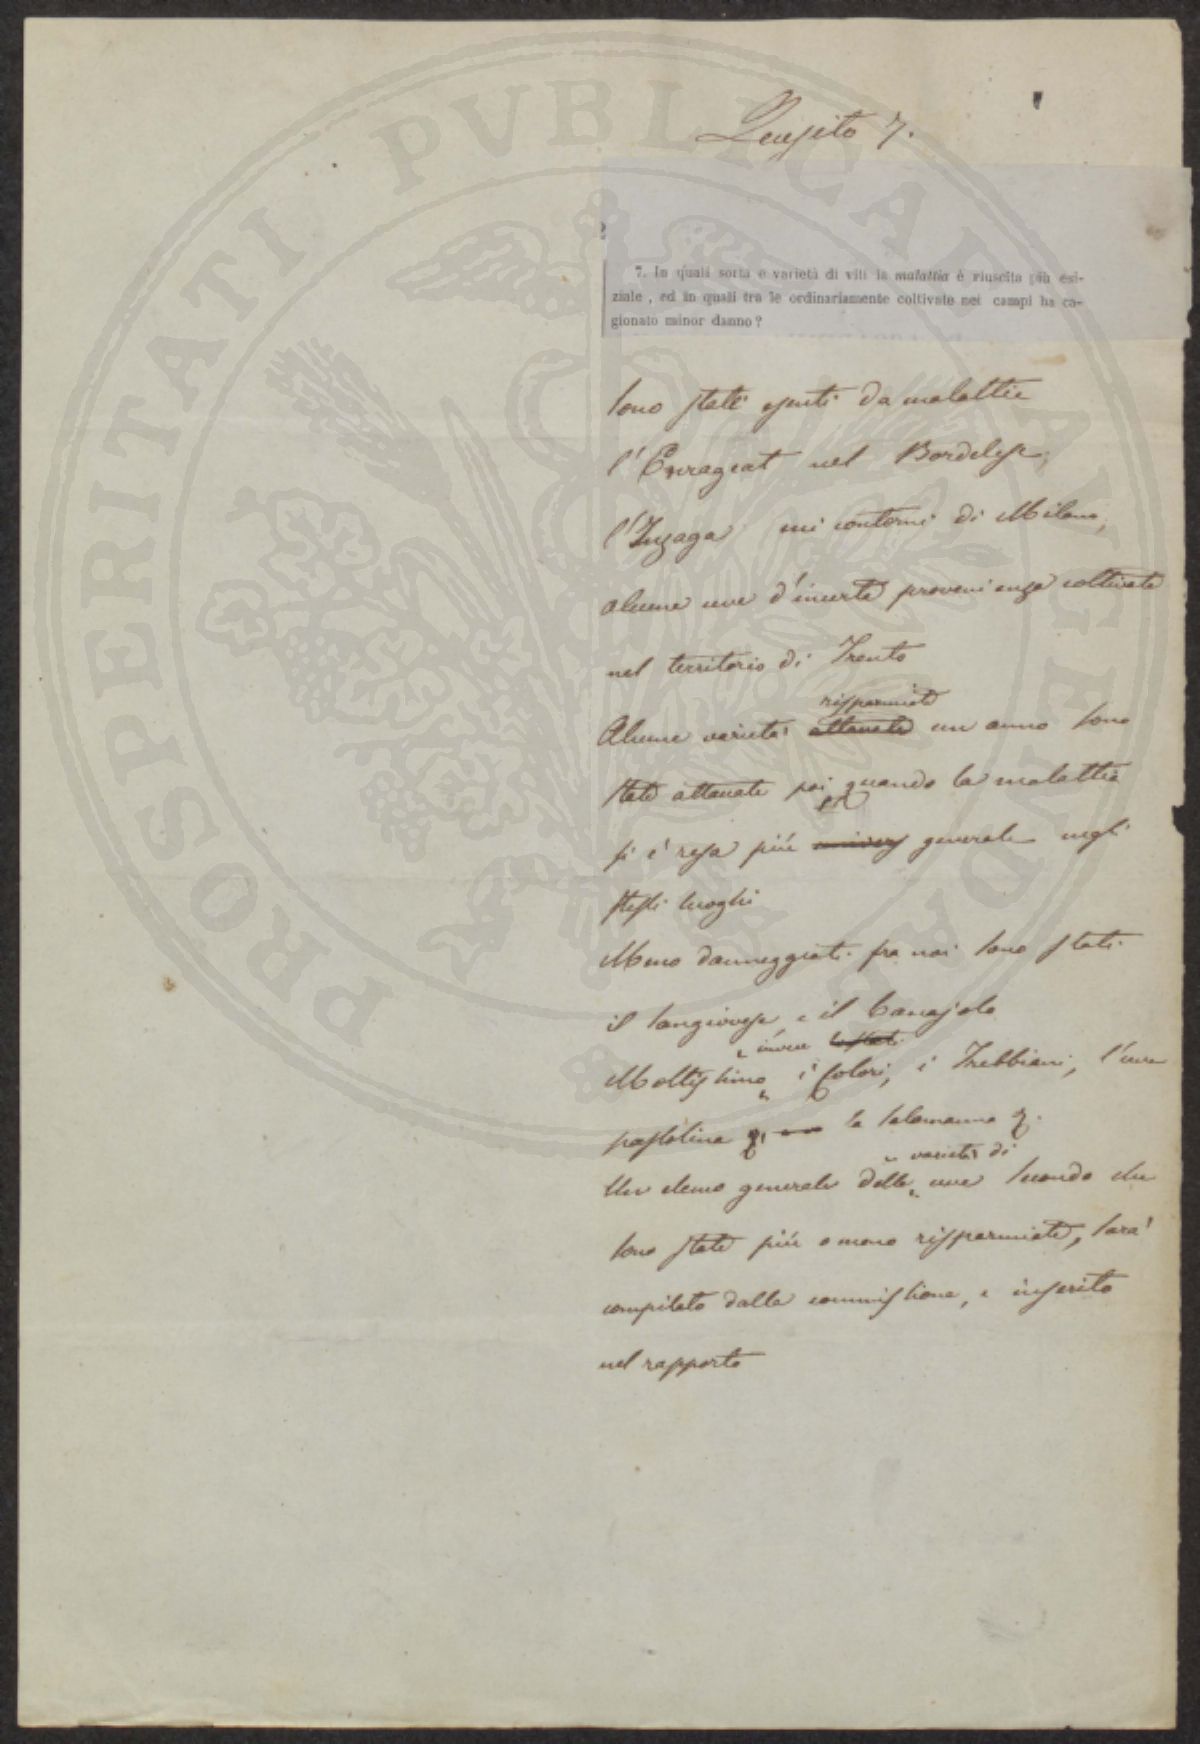 Quesito 7.
7. In quali sorta e varietà di viti la malattia è riuscita più esi-
ziale, ed in quali tra le ordinariamente coltivate nei campi ha ca-
gionato minor danno?
Sono stati esenti da malattie
l'Enrageat nel Bordelese,
l'Inzaga nei contorni di Milano,
alcune uve d'incerta provenienza coltivate
nel territorio di Trento
risparmiate
Alcune varietà attaccate un anno sono
state attaccate poi quando la malattia
si è resa più univers generale negli
stessi luoghi
Meno danneggiati fra noi sono stati
il Sangiovese, e il Canajolo
invece
Moltissimo i Colori, i Trebbiani, l'uva
la Salamanna
varietà di
Un elenco generale delle uve secondo che
sono state più o meno risparmiate, sarà
compilato dalla commissione, e inserito
nel rapporto
PROSPERITATI PVBLICAE AVGENDAE